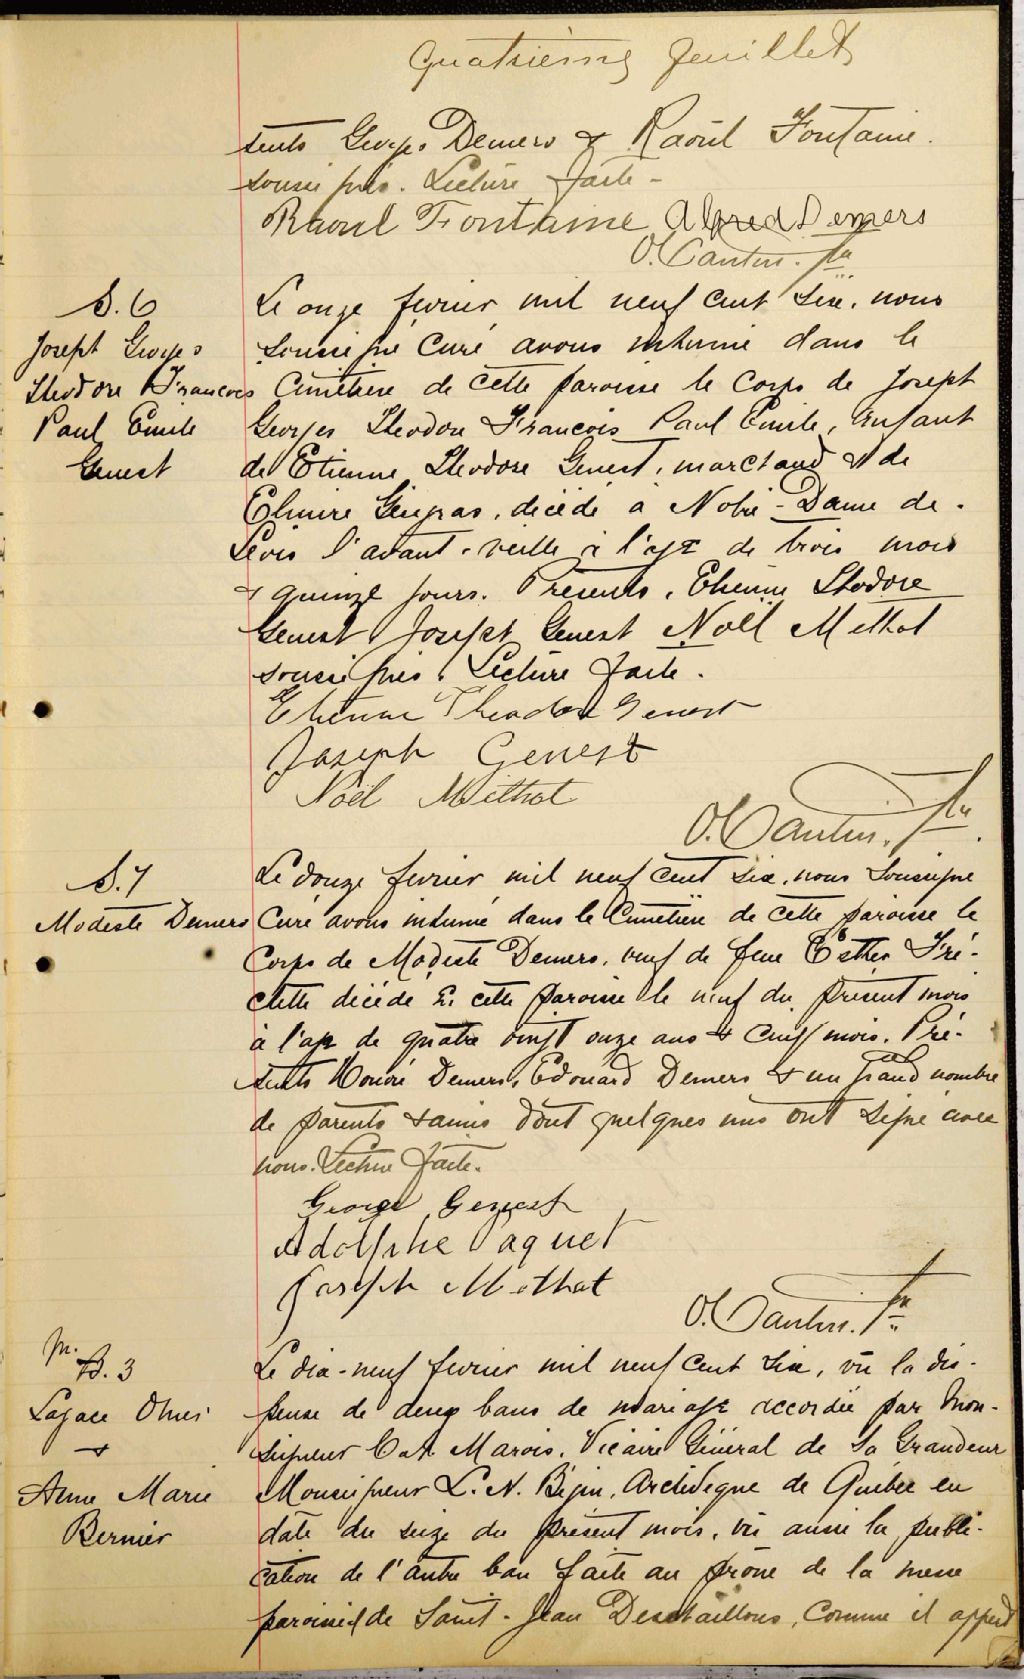 Quatrième feuillet
sents Georges Demers & Raoul Fontaine.
soussignés. Lecture faite -
Raoul Fontaine Alfred Demers
O. Cantin. Ptre
S. 6
Joseph Georges
Théodore Francois
Paul Emile
Genest
Le onze fevrier mil neuf cent six, nous
soussigné Curé avons inhumé dans le
Cimetière de cette paroisse le Corps de Joseph
Georges Theodore Francois Paul Emile, enfant
de Etienne Théodore Genest, marchand & de
Elmire Gingras, décédé à Notre-Dame de
Lévis l'avant-veille à l'age de trois mois
& quinze jours. Présents, Etienne Théodore
Genest, Joseph Genest Noël Methot
soussignés. Lecture faite.
Etienne Theodore Genest
Joseph Genest
Noël Méthot
O. Cantin. Ptre
S. 7
Modeste Demers
Le douze fevrier mil neuf cent six, nous soussigné
Curé avons inhumé dans le Cimetière de cette paroisse le
Corps de Modeste Demers, veuf de feue Esther Fré-
chette décédé en cette paroisse le neuf du présent mois
à l'age de quatre vingt onze ans & cinq mois. Pré-
sents Honoré Demers, Edouard Demers & un grand nombre
de parents & amis dont quelques uns ont signé avec
nous. Lecture faite.
George Genest
Adolphe Paquet
Joseph Methot
O. Cantin. Ptre
m.
B. 3
Lagace Omer
&
Anne Marie
Bernier
Le dix-neuf fevrier mil neuf cent six, vu la dis-
pense de deux bans de mariage accordée par Mon-
signeur C. A. Marois, Vicaire Général de Sa Grandeur
Monseigneur L. N. Bégin, Archevêque de Québec en
date du seize du présent mois, vu aussi la publi-
cation de l'autre ban faite au prône de la messe
paroissiale de Saint-Jean Deschaillons, comme il appert